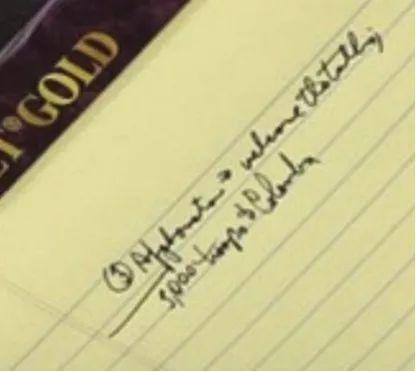 T® GOLD
① Afghanistan welcome the talks
5,000 troops to Colombia